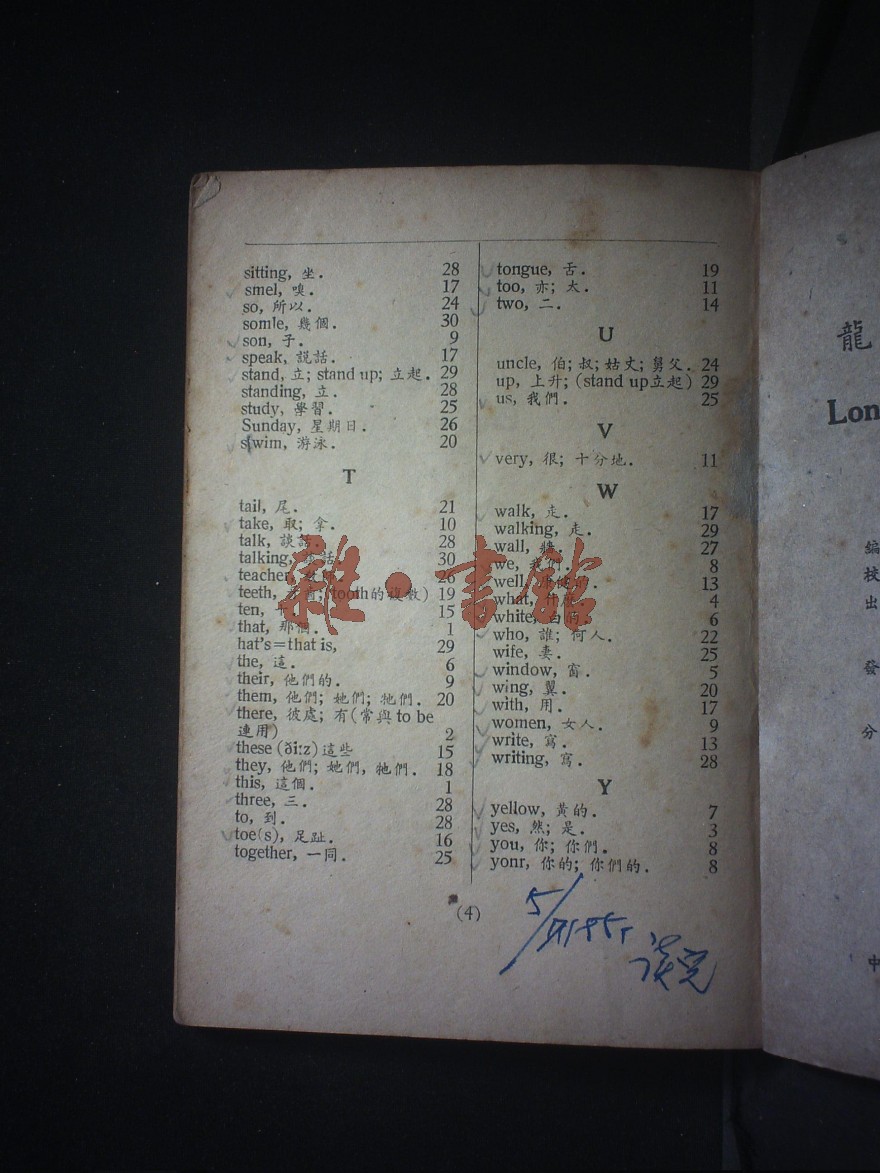 sitting, 坐. 28
smel, 嗅. 17
so, 所以. 24
som!e, 幾個. 30
son, 子. 9
speak, 説話. 17
stand, 立; stand up; 立起. 29
standing, 立. 28
study, 學習. 25
Sunday, 星期日. 26
swim, 游泳. 20
T
tail, 尾. 21
take, 取; 拿. 10
talk, 談話. 28
talking, 話. 30
teacher, 26
teeth, tooth的複數) 19
ten, 十. 15
that, 那個. 1
hat's=that is, 29
the, 這. 6
their, 他們的. 9
them, 他們; 她們; 牠們. 20
there, 彼處; 有(常與 to be
連用) 2
these (ði:z) 這些 15
they, 他們; 她們, 牠們. 18
this, 這個. 1
three, 三. 28
to, 到. 28
toe(s), 足趾. 16
together, 一同. 25
tongue, 舌. 19
too, 亦; 太. 11
two, 二. 14
U
uncle, 伯; 叔; 姑丈; 舅父. 24
up, 上升; (stand up立起) 29
us, 我們. 25
V
very, 很; 十分地. 11
W
walk, 走. 17
walking, 走. 29
wall, 牆. 27
we, 我們. 8
well, 的. 13
what, 什麽. 4
white, 白的. 6
who, 誰; 何人. 22
wife, 妻. 25
window, 窗. 5
wing, 翼. 20
with, 用. 17
women, 女人. 9
write, 寫. 13
writing, 寫. 28
Y
yellow, 黃的. 7
yes, 然; 是. 3
you, 你; 你們. 8
yonr, 你的; 你們的. 8
(4)
5/
读完
雜·書館
龍
Lon
編
校
出
發
分
中